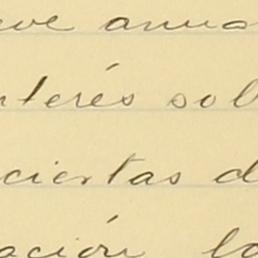 ve anua
nterés sob
ciertas d
ación la